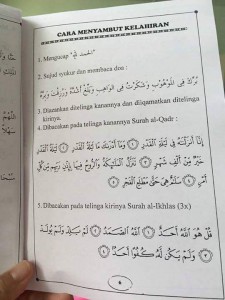 CARA MENYAMBUT KELAHIRAN
1. Mengucap "الحمد لله"
2. Sujud syukur dan membaca doa :
بُورِكَ لَكَ فِي الْمَوْهُوبِ وَشَكَرْتَ الْوَاهِبَ وَبَلَغَ أَشُدَّهُ وَرُزِقْتَ بِرَّهُ
3. Diazankan ditelinga kanannya dan diiqamatkan ditelinga
kirinya.
4. Dibacakan pada telinga kanannya Surah al-Qadr :
إِنَّا أَنزَلْنَاهُ فِي لَيْلَةِ الْقَدْرِ ﴿١﴾ وَمَا أَدْرَاكَ مَا لَيْلَةُ الْقَدْرِ ﴿٢﴾ لَيْلَةُ الْقَدْرِ
خَيْرٌ مِّنْ أَلْفِ شَهْرٍ ﴿٣﴾ تَنَزَّلُ الْمَلَائِكَةُ وَالرُّوحُ فِيهَا بِإِذْنِ رَبِّهِم مِّن كُلِّ
أَمْرٍ ﴿٤﴾ سَلَامٌ هِيَ حَتَّىٰ مَطْلَعِ الْفَجْرِ ﴿٥﴾
5. Dibacakan pada telinga kirinya Surah al-Ikhlas (3x)
قُلْ هُوَ اللَّهُ أَحَدٌ ﴿١﴾ اللَّهُ الصَّمَدُ ﴿٢﴾ لَمْ يَلِدْ وَلَمْ يُولَدْ
﴿٣﴾ وَلَمْ يَكُن لَّهُ كُفُوًا أَحَدٌ ﴿٤﴾
6